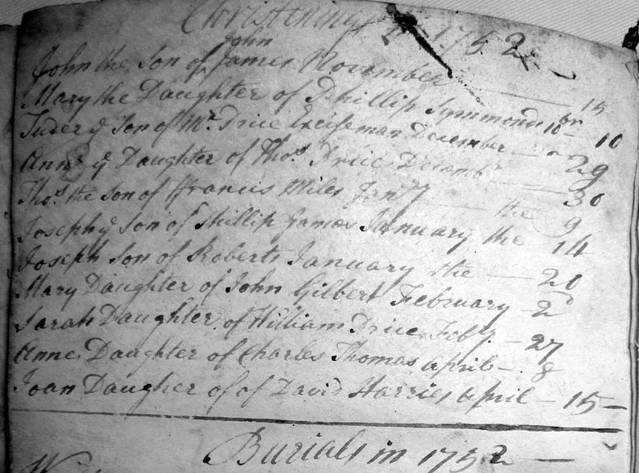 Christenings 1752
John the Son of John James November 15
Mary the Daughter of Phillip Symmonds 10 br 10
Tuder ye Son of Mr. Price Exciseman December 29
Anne ye Daughter of Thos. Price Decembr 30
Thos. the Son of Francis Miles Jany the 9
Joseph ye Son of Phillip James January the 14
Joseph Son of Roberts January the 20
Mary Daughter of John Gilbert February 2d
Sarah Daughter of William Price Feby 27
Anne Daughter of Charles Thomas April 8
Joan Daugher of of David Harries April 15
Burials in 1752